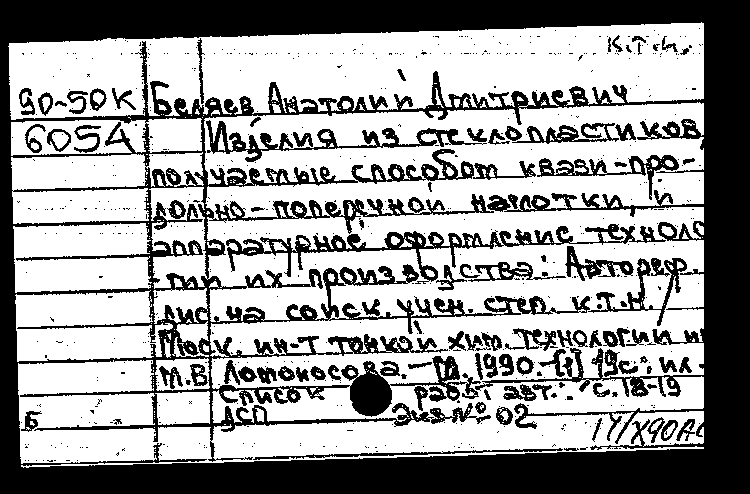 К.Т.Н.
90-50К Беляев Анатолий Дмитриевич
6054 Изделия из стеклопластиков,
получаемые способом квази-про-
дольно-поперечной намотки, и
аппаратурное оформление техноло
гии их производства: Автореф.
дис. на соиск. учен. степ. к.т.н. /
Моск. ин-т тонкой хим. технологии им
М.В. Ломоносова. - М. 1990. - [1] 19с.: ил -
Список работ авт.: с. 18-19
Б ДСП Экз № 02